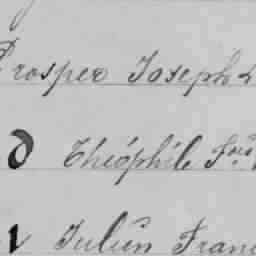 Prosper Joseph L
d Théophile Fois
1 Julien Franc